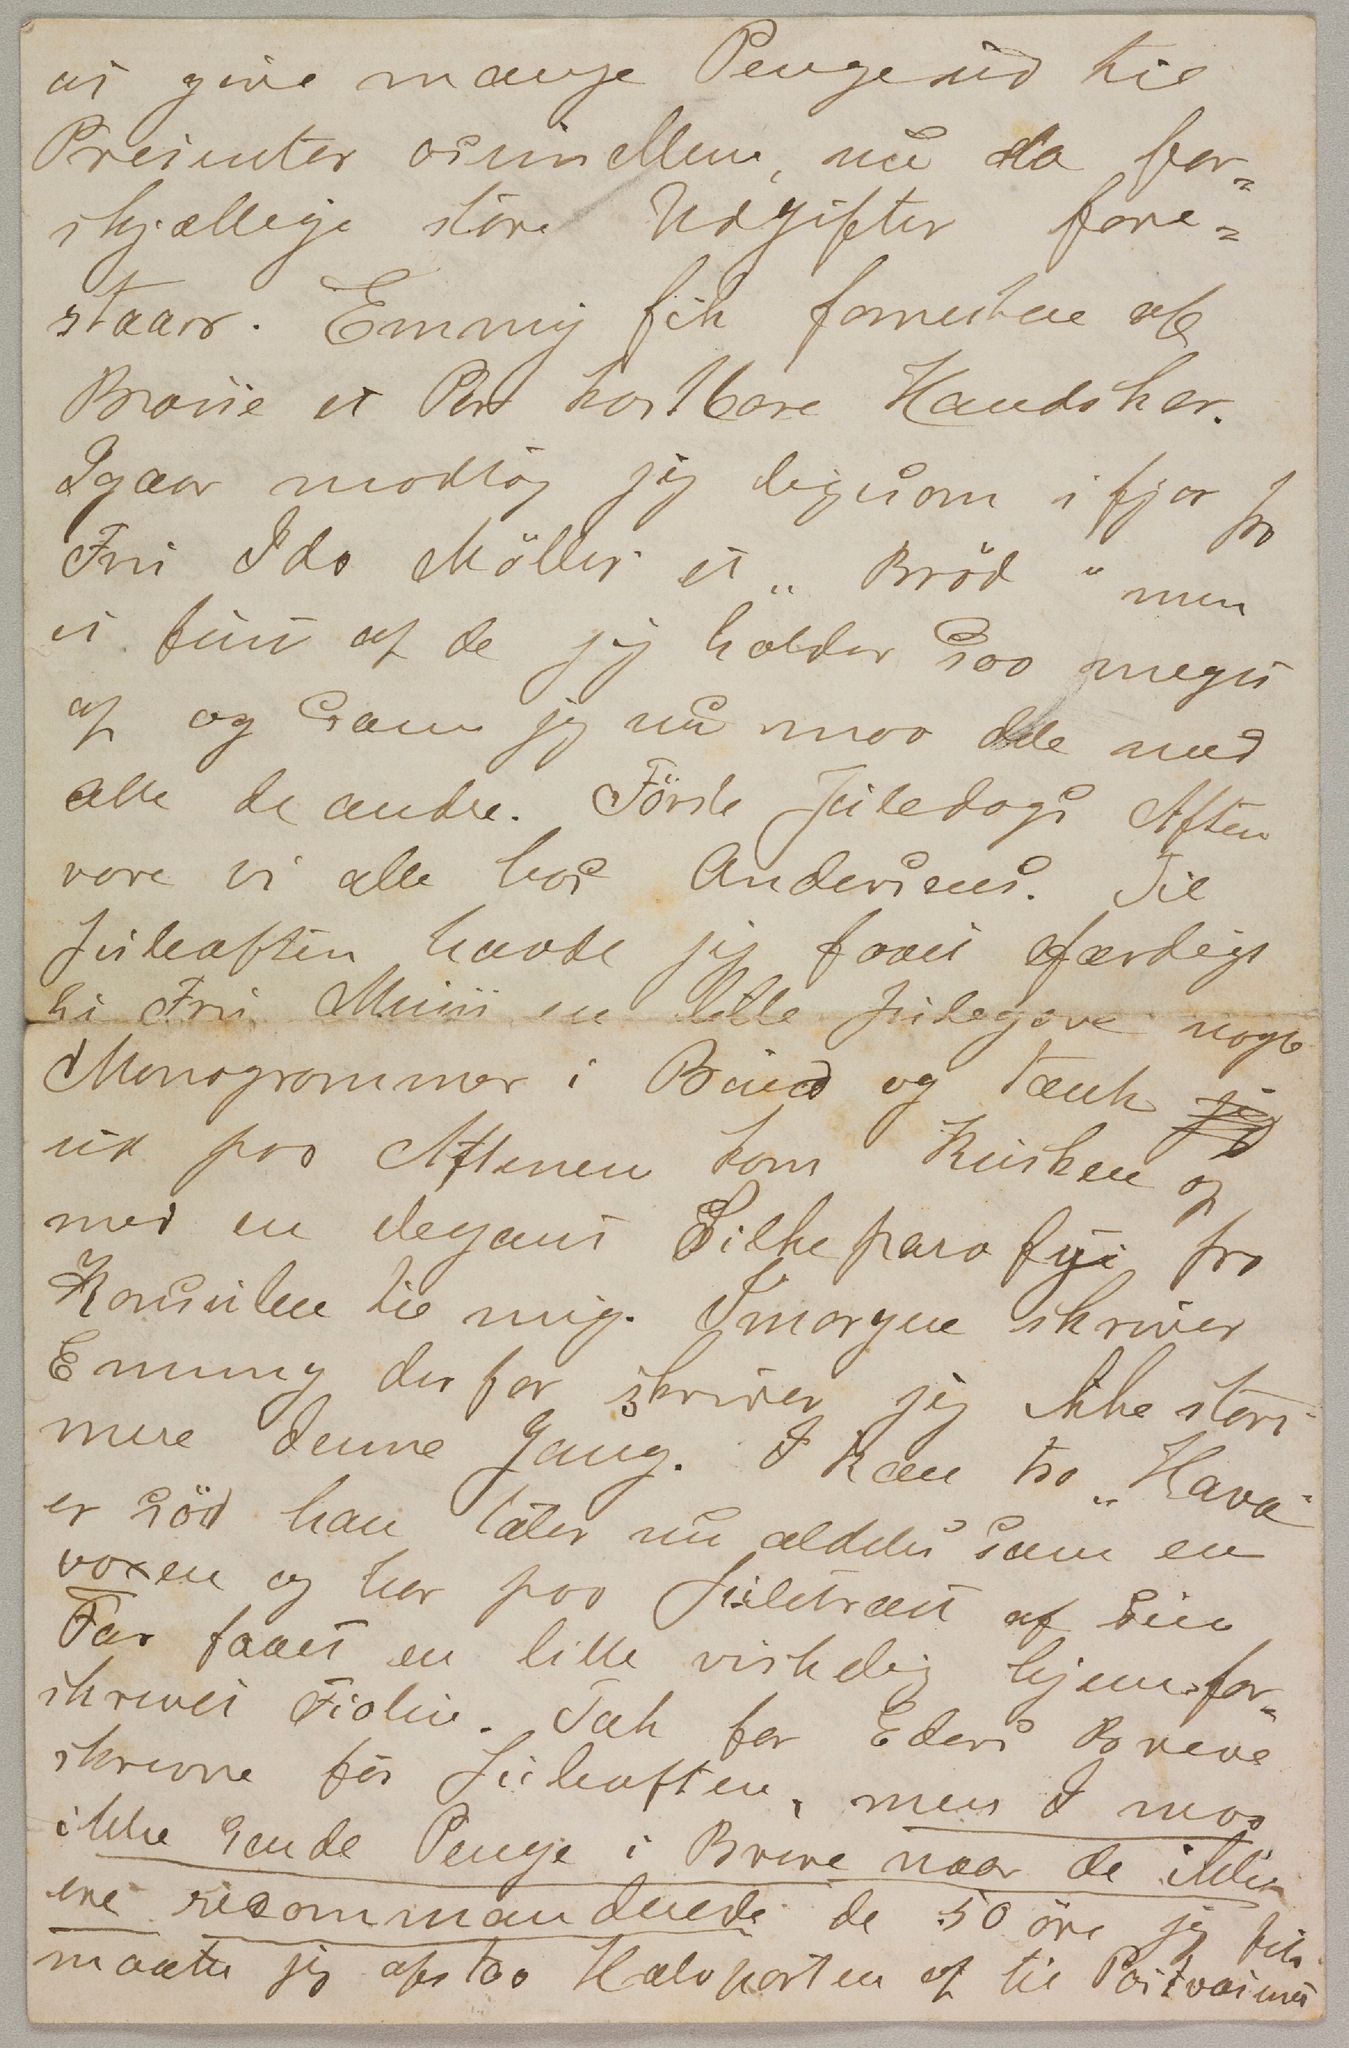 at give mange Penge ud til
Presenter osimellem, nu da for=
skjællige störe Udgifter fore=
staar. Emmy fik foruesten af
Brosie et Par kostbare Handsker.
Igaar modtog jeg ligesom i fjor fra
Fru Ida Möller et „Bröd“ men
et fint af de jeg holder saa meget
af og som jeg nu maa dele med
alle de andre. Förste Juledags Aften
vare vi alle hos Andersens. Til
Juleaften havde jeg faaet færdigt
ti Fru Muus en lille Julegave nogle
Monogrammer i Bund og tænk
ud paa Aftenen kom Kusken op
med en elegant Silkeparafyi fra
Konsulen til mig. Imorgen skriver
Emmy derfor skriver jeg ikke stort
mere denne Gang. I kan tro „Hava“
er söd han taler nu aldeles som en
voxen og har paa Juletræet af sin
Far faaet en lille virkelig hjemfor=
skrevet Fiolin. Tak for Eders Breve
skrevne för Juleaften, men I maa
ikke sende Penge i Breve naar de ikke
ere recommanderede de 50 öre jeg fik
maatte jeg afstaa Halvparten af til Postvæsnet